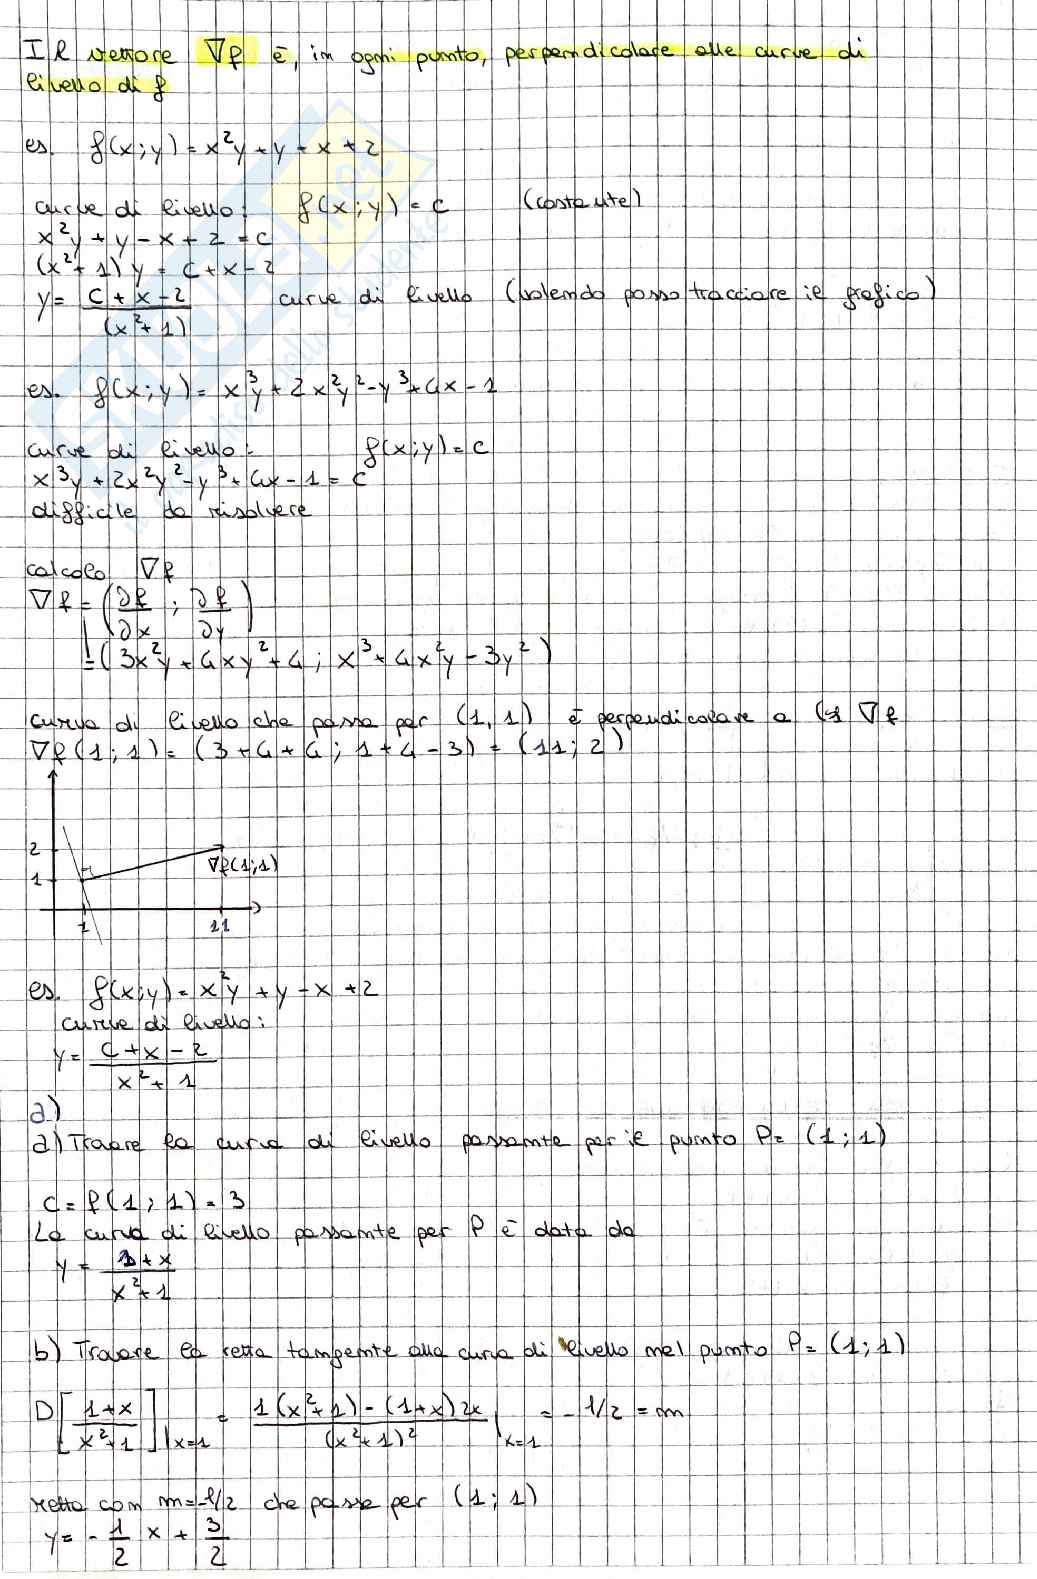 Il vettore ∇f è, in ogni punto, perpendicolare alle curve di
livello di f
es. f(x;y) = x²y + y - x + 2
curve di livello: f(x;y) = c (costante)
x²y + y - x + 2 = c
(x²+1)y = c + x - 2
y = (c + x - 2)/(x²+1) curve di livello (volendo posso tracciare il grafico)
es. f(x;y) = x³y + 2x²y² - y³ + 4x - 1
curve di livello: f(x;y) = c
x³y + 2x²y² - y³ + 4x - 1 = c
difficile da risolvere
calcolo ∇f
∇f = (∂f/∂x ; ∂f/∂y)
= (3x²y + 4xy² + 4 ; x³ + 4x²y - 3y²)
curva di livello che passa per (1,1) è perpendicolare a ∇f
∇f(1;1) = (3+4+4 ; 1+4-3) = (11; 2)
2
1
∇f(1;1)
1 11
es. f(x;y) = x²y + y - x + 2
curve di livello:
y = (c + x - 2)/(x² + 1)
a)
a) Trovare la curva di livello passante per il punto P = (1;1)
c = f(1;1) = 3
La curva di livello passante per P è data da
y = (1+x)/(x²+1)
b) Trovare la retta tangente alla curva di livello nel punto P = (1;1)
D[(1+x)/(x²+1)]|x=1 = (1(x²+1) - (1+x)2x)/(x²+1)² |x=1 = -1/2 = m
retta con m = -1/2 che passa per (1;1)
y = -1/2 x + 3/2